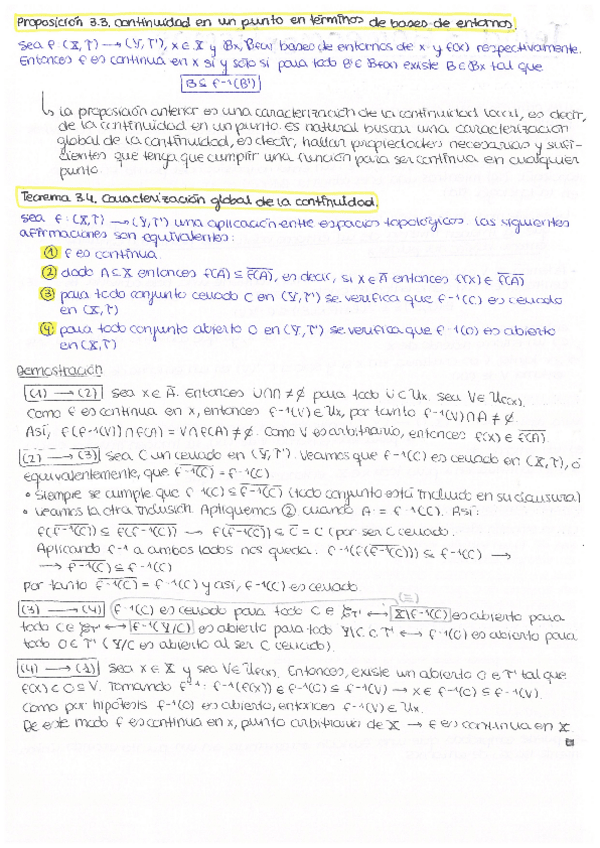 Proposición 3.3. Continuidad en un punto en términos de bases de entornos.
Sea f: (X,T) → (Y,T'), x ∈ X y Bx, Bf(x) bases de entornos de x y f(x) respectivamente.
Entonces f es continua en x si y sólo si para todo B' ∈ Bf(x) existe B ∈ Bx tal que
B ⊆ f⁻¹(B')
↳ La proposición anterior es una caracterización de la continuidad local, es decir,
de la continuidad en un punto. Es natural buscar una caracterización
global de la continuidad, es decir, hallar propiedades necesarias y sufi-
cientes que tenga que cumplir una función para ser continua en cualquier
punto.
Teorema 3.4. Caracterización global de la continuidad.
Sea f: (X,T) → (Y,T') una aplicación entre espacios topológicos. Las siguientes
afirmaciones son equivalentes:
① f es continua.
② dado A ⊆ X entonces f(A̅) ⊆ \overline{f(A)}, es decir, si x ∈ A̅ entonces f(x) ∈ \overline{f(A)}
③ para todo conjunto cerrado C en (Y,T') se verifica que f⁻¹(C) es cerrado
en (X,T)
④ para todo conjunto abierto O en (Y,T') se verifica que f⁻¹(O) es abierto
en (X,T)
Demostración
(1) → (2) Sea x ∈ A̅. Entonces U∩A ≠ ∅ para todo U ∈ Ux. Sea V ∈ Uf(x).
Como f es continua en x, entonces f⁻¹(V) ∈ Ux, por tanto f⁻¹(V)∩A ≠ ∅.
Así, f(f⁻¹(V))∩f(A) = V∩f(A) ≠ ∅. Como V es arbitrario, entonces f(x) ∈ \overline{f(A)}.
(2) → (3) Sea C un cerrado en (Y,T'). Veamos que f⁻¹(C) es cerrado en (X,T), o
equivalentemente, que \overline{f⁻¹(C)} = f⁻¹(C)
• Siempre se cumple que f⁻¹(C) ⊆ \overline{f⁻¹(C)} (todo conjunto está incluido en su clausura)
• Veamos la otra inclusión. Apliquemos ② cuando A = f⁻¹(C). Así:
f(\overline{f⁻¹(C)}) ⊆ \overline{f(f⁻¹(C))} → f(\overline{f⁻¹(C)}) ⊆ C̅ = C (por ser C cerrado.
Aplicando f⁻¹ a ambos lados nos queda: f⁻¹(f(\overline{f⁻¹(C)})) ⊆ f⁻¹(C) →
→ \overline{f⁻¹(C)} ⊆ f⁻¹(C)
Por tanto \overline{f⁻¹(C)} = f⁻¹(C) y así, f⁻¹(C) es cerrado.
(=)
(3) → (4) f⁻¹(C) es cerrado para todo C ∈ ↔ X\f⁻¹(C) es abierto para
todo C ∈ ↔ f⁻¹(Y/C) es abierto para todo Y\C ∈ T' ↔ f⁻¹(O) es abierto para
todo O ∈ T' (Y/C es abierto al ser C cerrado).
(4) → (1) Sea x ∈ X y sea V ∈ Uf(x). Entonces, existe un abierto O ∈ T' tal que
f(x) ∈ O ⊆ V. Tomando f⁻¹: f⁻¹(f(x)) ∈ f⁻¹(O) ⊆ f⁻¹(V) → x ∈ f⁻¹(O) ⊆ f⁻¹(V).
Como por hipótesis f⁻¹(O) es abierto, entonces f⁻¹(V) ∈ Ux.
De este modo f es continua en x, punto arbitrario de X → f es continua en X.